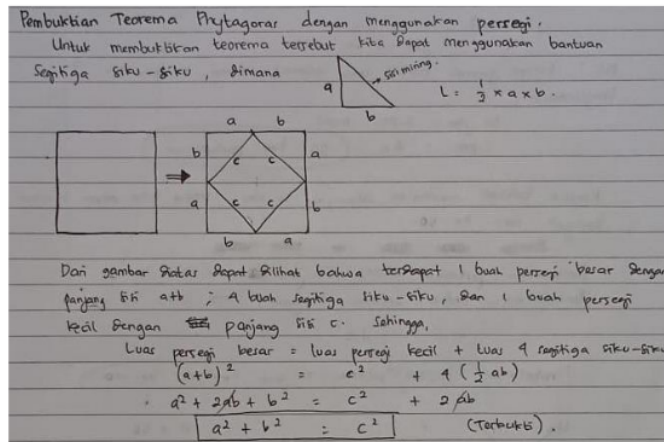 Pembuktian Teorema Phytagoras dengan menggunakan persegi.
Untuk membuktikan teorema tersebut kita dapat menggunakan bantuan
Segitiga siku-siku, dimana
sisi miring.
a
b
L = 1/3 x a x b.
a b
b c c a
a c c b
b a
Dari gambar diatas dapat dilihat bahwa terdapat 1 buah persegi besar dengan
panjang sisi a+b ; 4 buah segitiga siku-siku, dan 1 buah persegi
kecil dengan panjang sisi c. Sehingga,
Luas persegi besar = luas persegi kecil + Luas 4 segitiga siku-siku
(a+b)² = c² + 4 (1/2 ab)
a² + 2ab + b² = c² + 2ab
a² + b² = c² (Terbukti).